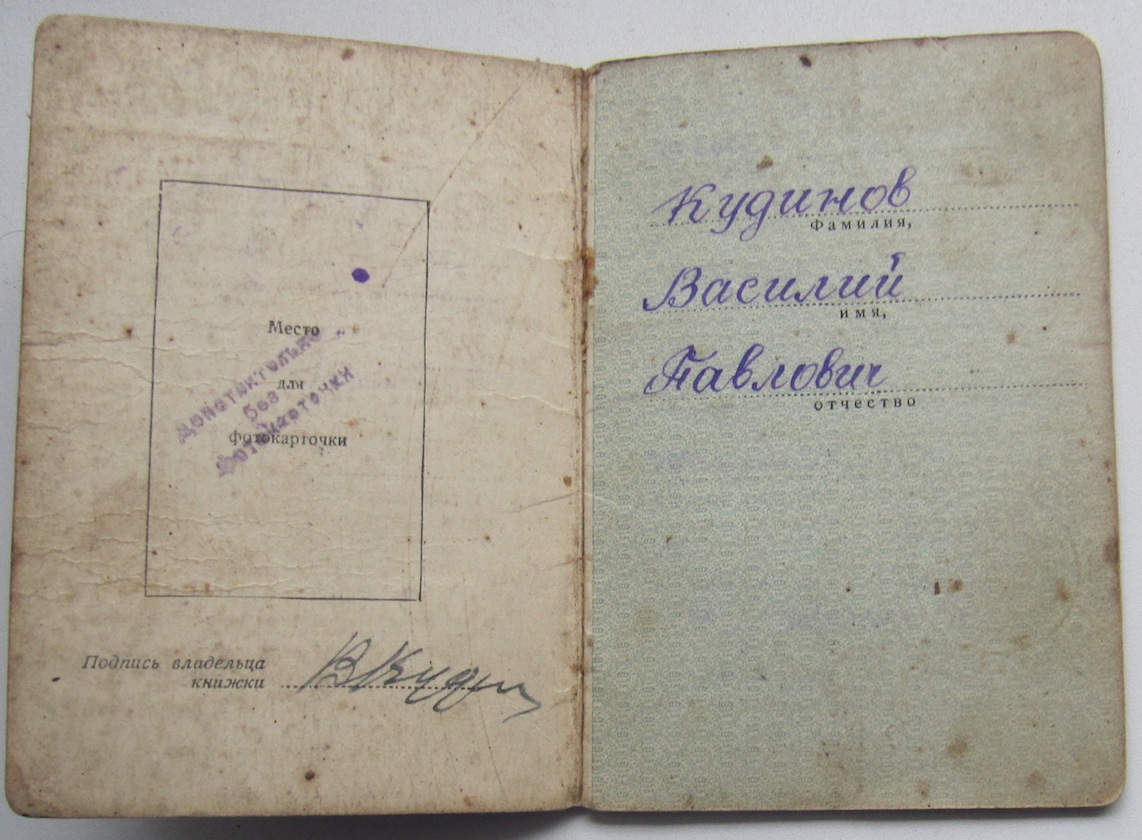 Место
для
фотокарточки
Действительно
без
фотокарточки
Подпись владельца
книжки
В Куди
Кудинов
Фамилия,
Василий
имя,
Павлович
отчество